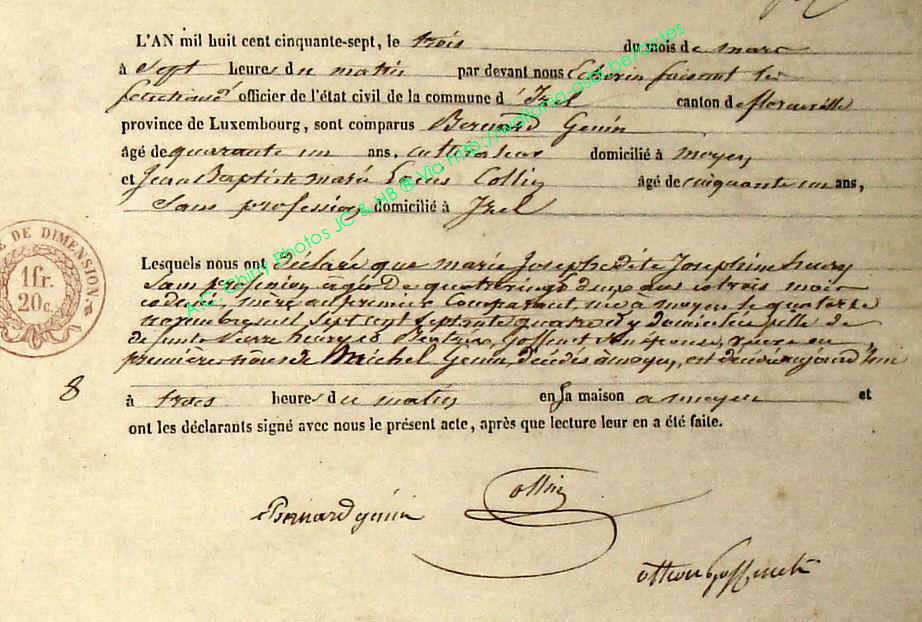 L'AN mil huit cent cinquante-sept, le trois du mois de mars
à Sept heures du matin par devant nous Echevin faisant les
fonctions officier de l'état civil de la commune d'Izel canton de florenville
province de Luxembourg, sont comparus Bernard Genin
âgé de quarante un ans, cultivateur domicilié à moyen
et Jean Baptiste marie Louis Collin âgé de cinquante un ans,
Sans profession domicilié à Izel
Lesquels nous ont déclaré que marie Josephe dite Josephine henry
Sans profession agée de quatre vingt deux ans et trois mois
mère au premier Comparant née a moyen le quatorze
novembre mil sept cent septante quatre et y domiciliée fille de
Pierre henry et Goffinet Son épouse, veuve en
première nôces de Michel Genin, décédé à moyen, est décédée aujourd'hui
8
à trois heures du matin en sa maison a moyen et
ont les déclarants signé avec nous le présent acte, après que lecture leur en a été faite.
Bernard genin Collin
Goffinet
DE DIMENSION.
1 fr.
20 c.
A.C. Chiny Photos JC & HB ® Via http://wallonia-asbl.be/actes